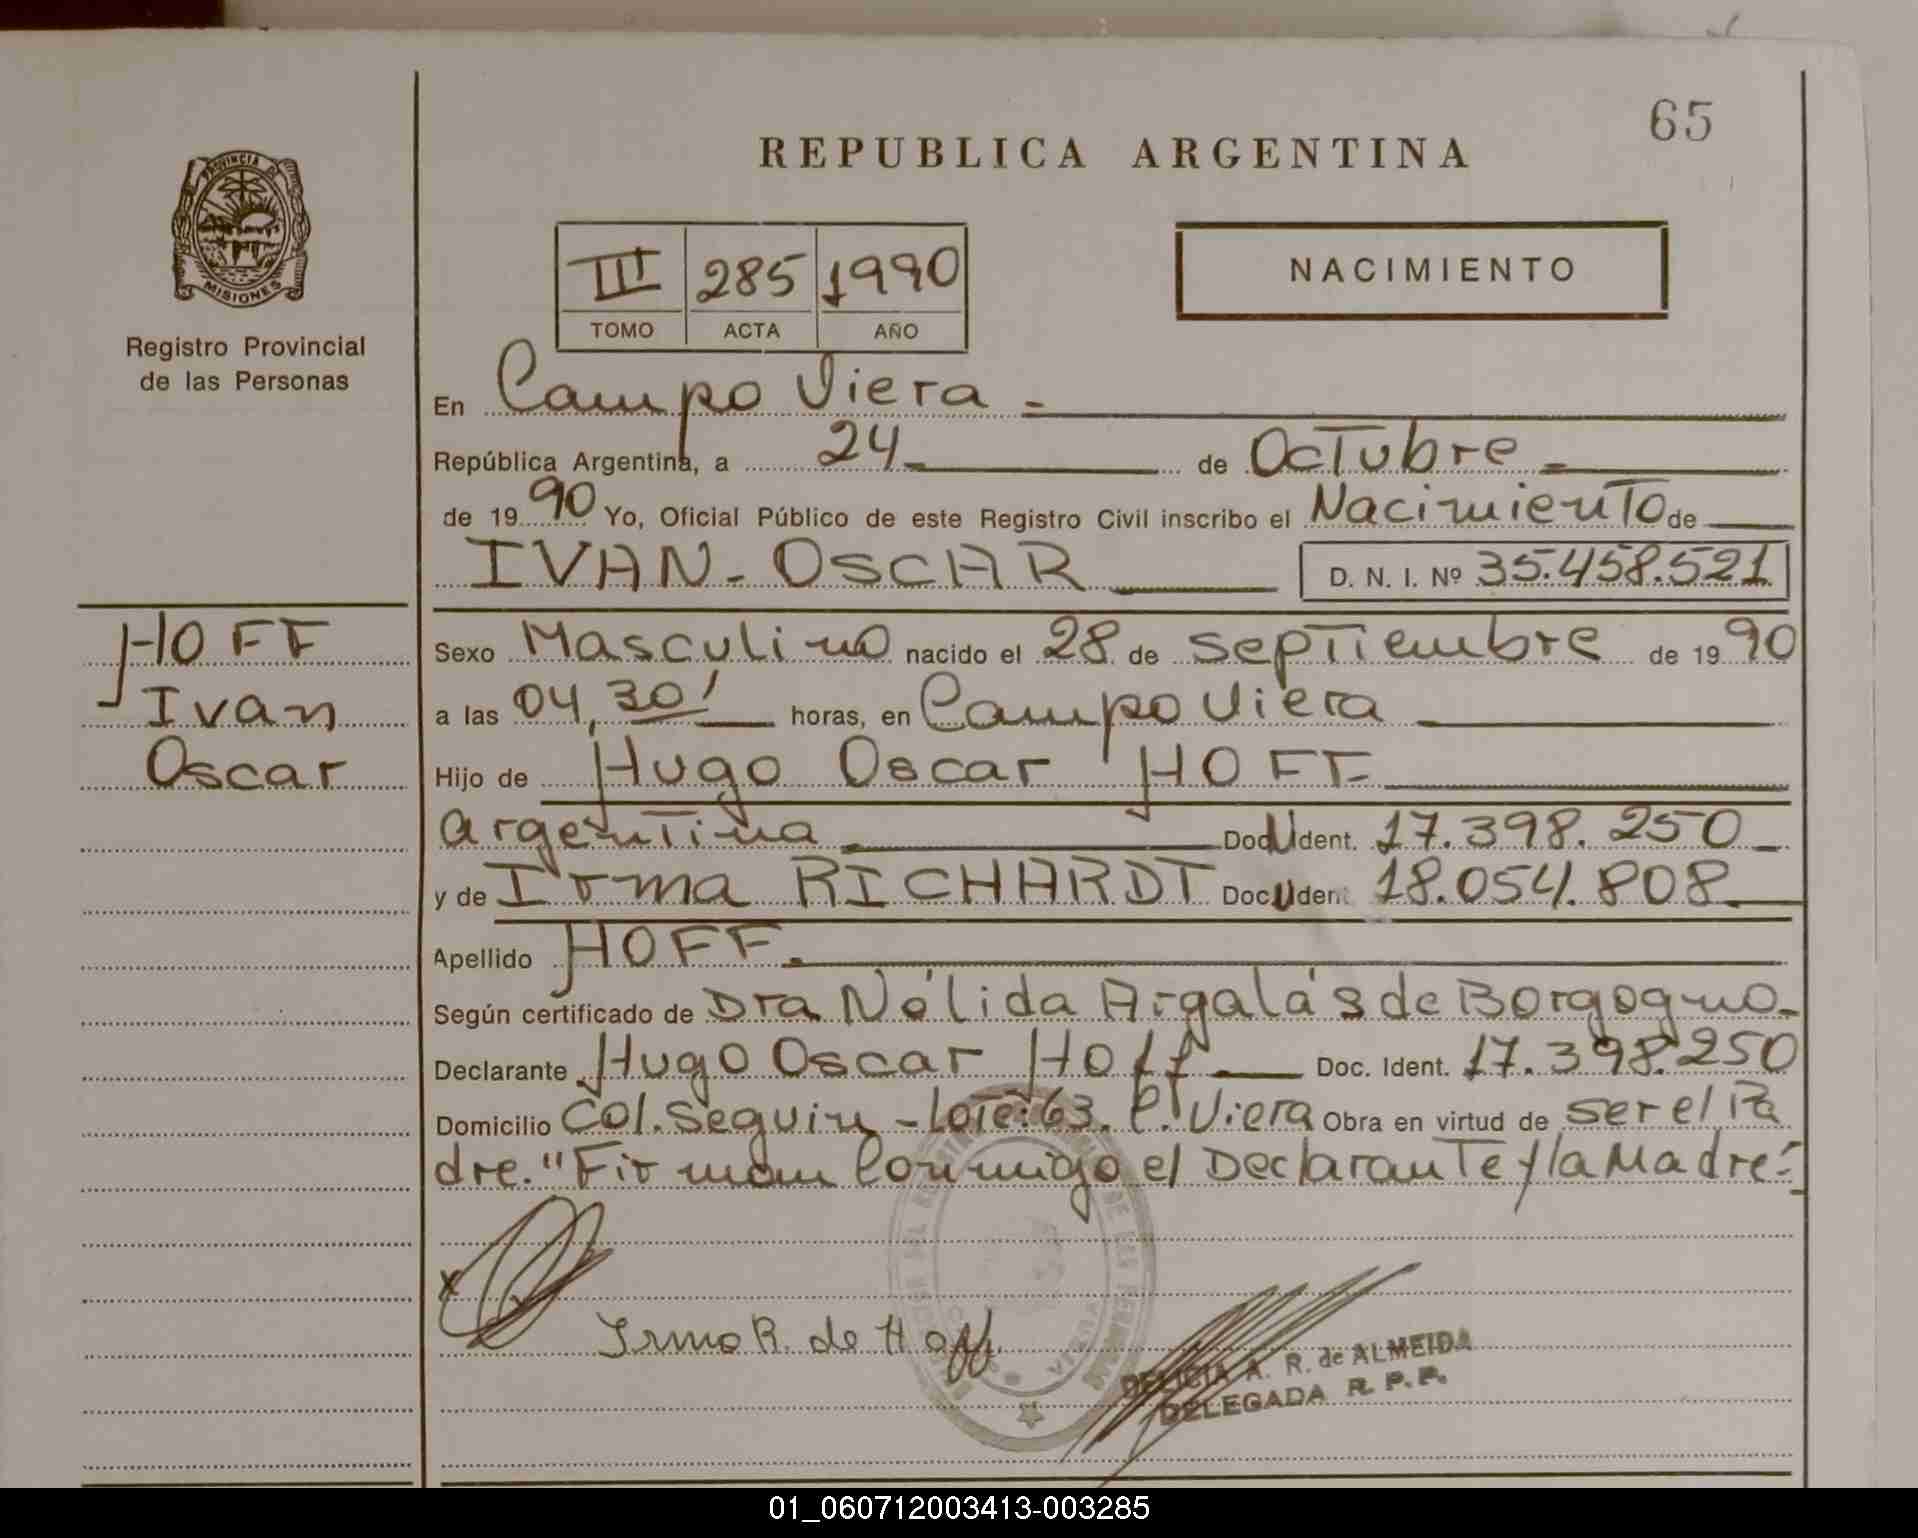 65
REPUBLICA ARGENTINA
PROVINCIA D
MISIONES
Registro Provincial
de las Personas
III 285 1990
TOMO ACTA AÑO
NACIMIENTO
En Campo Viera -
República Argentina, a 24 de Octubre
de 19 90 Yo, Oficial Público de este Registro Civil inscribo el Nacimiento de
IVAN - OSCAR D. N. I. Nº 35.458.521
HOFF
Ivan
Oscar
Sexo Masculino nacido el 28 de septiembre de 19 90
a las 04,30' horas, en Campo Viera
Hijo de Hugo Oscar HOFF
argentina Doc U Ident. 17.398.250
y de Irma RICHARDT Doc U Ident. 18.054.808
Apellido HOFF.
Según certificado de Dra Nélida Argalás de Borgogno.
Declarante Hugo Oscar Hoff Doc. Ident. 17.398.250
Domicilio Col. Seguin - Lote: 63. C. Viera Obra en virtud de ser el Pa
dre. "Firman Conmigo el Declarante y la Madre".
Irma R. de Hoff.
VIERA
DELICIA A. R. de ALMEIDA
DELEGADA R. P. P.
01_060712003413-003285